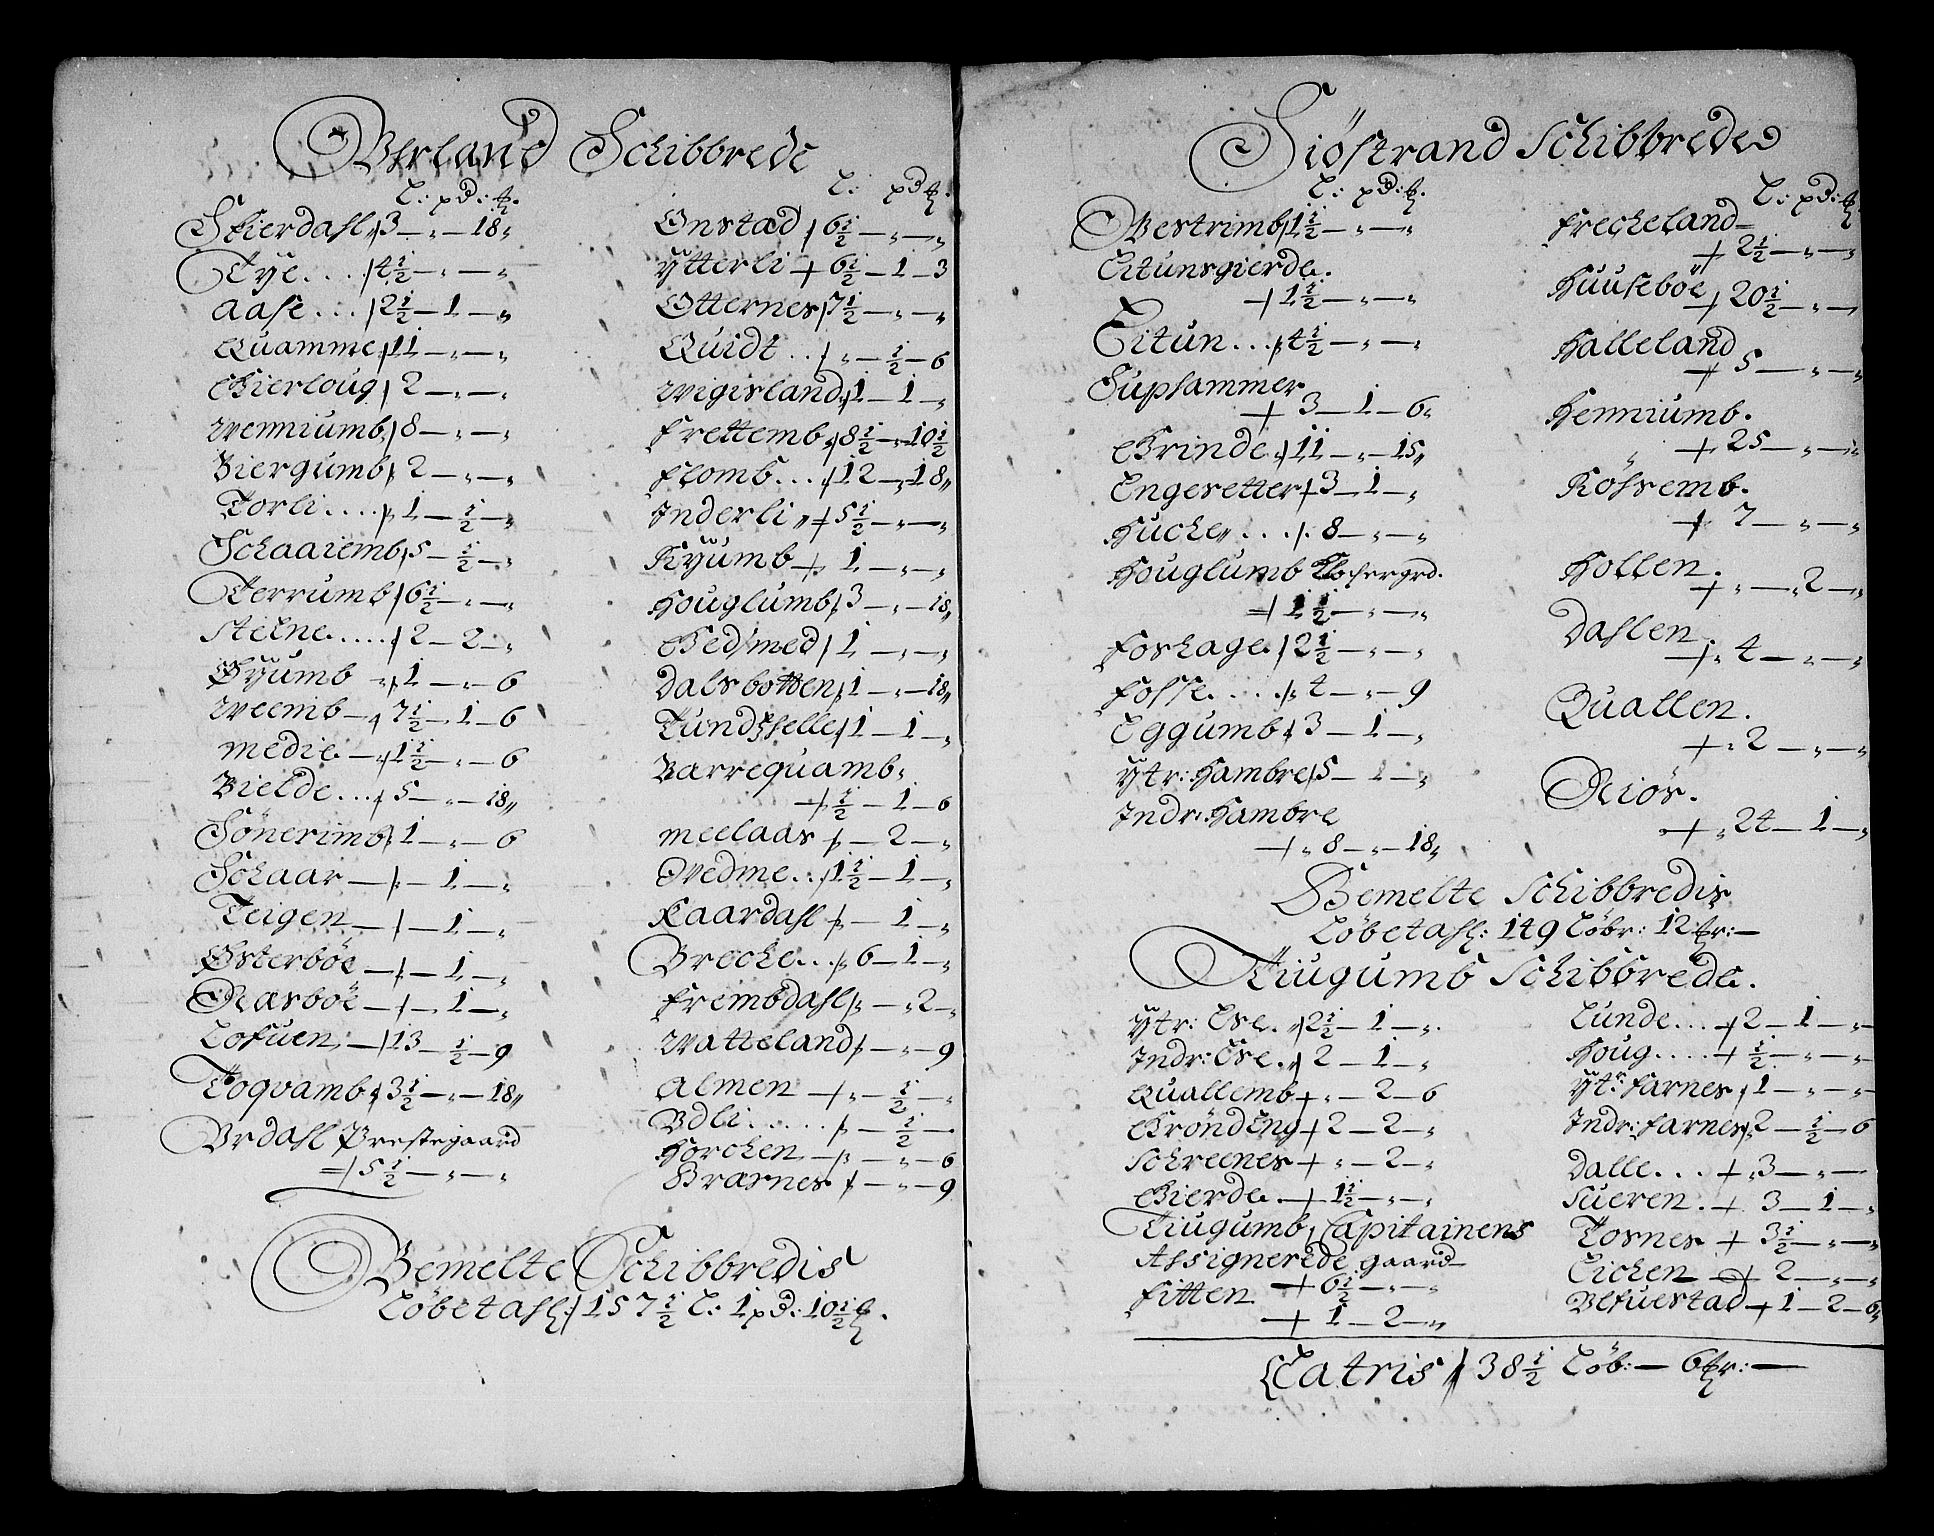 Urland Schibbrede
L: pd: ℔.
Skierdahl 3 — „ — 18 „
Tye . . . . 4½ — „ — „
Aase . . . 2½ — 1 — „
Quamme 11 — „ — „
Gierloug 2 — „ — „
Wenniumb 8 — „ — „
Biergumb 2 — „ — „
Torli . . . . 1 — ½ — „
Schaaiemb 5 — ½ — „
Terrumb 6½ — „ — „
Steine . . . . . 2 — 2 — „
Gyumb 1 — „ — 6
Weemb — 7½ — 1 — 6
Medie — 1½ — „ — 6
Bielde . . . 5 — „ — 18 „
Sönerimb 1 — „ — 6
Schaar — „ — 1 — „
Teigen — — 1 — „
Østerböe — — 1 — „
Næsböe — — 1 — „
Lofuen — 13 — ½ — 9
Toqvamb 3½ — „ — 18 „
Urdahl Prestegaard
5½ — „ — „
L: pd ℔.
Onstad 6½ — „ — „
Ytterli 6½ — 1 — 3
Otternes 7½ — „ — „
Quidt . . „ — ½ — 6
Wigisland 1 — 1 — „
Frettemb 8½ — „ — 10½
Flomb . . . 12 — „ — 18 „
Inderli „ 5½ — „ — „
Ryumb 1 — „ — „
Houglumb 3 — „ — 18 „
Gedsmed 1 — „ — „
Dalsbotten 1 — „ — 18 „
Tundshelle 1 — 1 — „
Barrequamb.
½ — 1 — 6
Meelaas — 2 — „
Wedme . . 1½ — 1 — „
Kaardahl — 1 — „
Brecke . . . 6 — 1 — „
Frembdahl — „ 2 — „
Watteland — „ — 9
Almen „ — ½ — „
Udli . . . . . . — ½ — „
Horcken — „ — 6
Brærnes — „ — 9
Bemelte Schibbredis
Löbetahl: 157½ L: 1 pd: 10½ ℔.
Siöstrand Schibbrede
L: pd: ℔.
Westrimb 1½ — „ — „
Eitunsgierde.
1½ — „ — „
Eitun . . . 4½ — „ — „
Suphammer
3 — 1 — 6 „
Grinde 11 — „ — 15 „
Engesetter 3 — 1 — „
Hucke „ . . . 8 — „ — „
Houglumb Klochergrd.
1½ — „ — „
Foshage 2½ — „ — „
Fosse . . . . 4 — „ — 9
Eggumb 3 — 1 — „
Ytr: Hambre 5 — 1 — „
Indr: Hambre
8 — „ — 18 „
L: pd: ℔.
Frecheland
2½ — „ — „
Huuseböe
20½ — „ — „
Halleland
5 — „ — „
Henniumb.
25 — „ — „
Röhsemb.
7 — „ — „
Hollen.
„ — 2 — „
Dahlen.
4 — „ — „
Quallen.
2 — „ — „
Niös.
24 — 1 — „
Bemelte Schibbredis
Löbetahl: 149 Löbr: 12 ℔r: —
Tiugumb Schibbrede.
Ytr: Ese. 2½ — 1 — „
Indr: Ese 2 — 1 — „
Quallemb „ — 2 — 6
Gröndeng 2 — 2 — „
Schreenes „ — 2 — „
Gierde 1½ — „ — „
Tiugumb, Capitainens
Assignerede gaard
6½ — „ — „
Fitten
1 — 2 — „
Lunde . . . 2 — 1 — „
Houg . . . . ½ — „ — „
Ytr: Farnes 1 — „ — „
Indr: Farnes 2 — ½ — 6
Dalle . . . 3 — „ — „
Sueren 3 — 1 — „
Tosnes 3½ — „ — „
Eichen 2 — „ — „
Ulfuestad 1 — 2 — 6
Latris 38½ Löb: — 6 ℔r: —